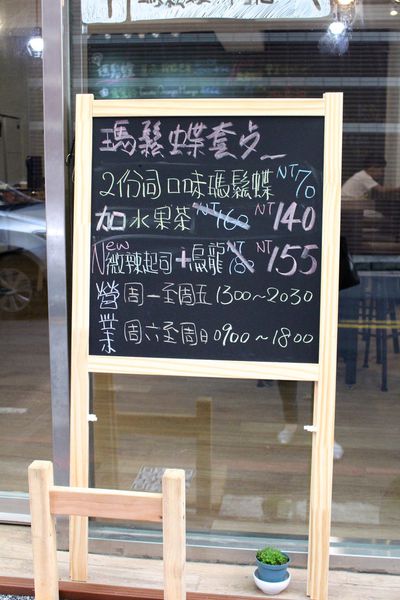 瑪鬆蝶套餐
2份同口味瑪鬆蝶 NT70
加水果茶 NT160 NT140
New 微辣起司+烏龍 NT 155
營業 周一至周五 1300~2030
周六至周日 0900~1800